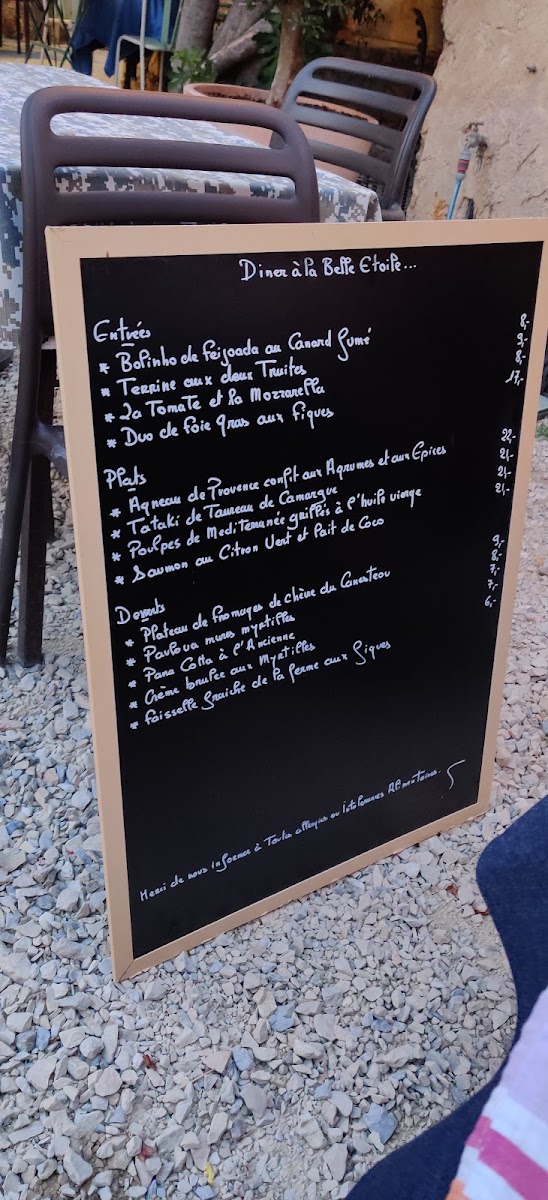 Diner à la Belle Etoile...
Entrées
* Bolinho de feijoada au Canard fumé 8,-
* Terrine aux deux Truites 9,-
* La Tomate et la Mozzarella 8,-
* Duo de foie gras aux figues 17,-
Plats
* Agneau de Provence confit aux Agrumes et aux Epices 22,-
* Tataki de Taureau de Camargue 21,-
* Poulpes de Mediterranée grillés à l'huile vierge 21,-
* Saumon au Citron Vert et lait de Coco 21,-
Desserts
* Plateau de fromages de chèvre du Canesteou 9,-
* Pavlova mures myrtilles 8,-
* Pana Cotta à l'Ancienne 7,-
* Crème brulee aux Myrtilles 7,-
* Faisselle fraiche de la ferme aux figues 6,-
Merci de nous informer à Toutes allergies ou Intolerances Alimentaires.